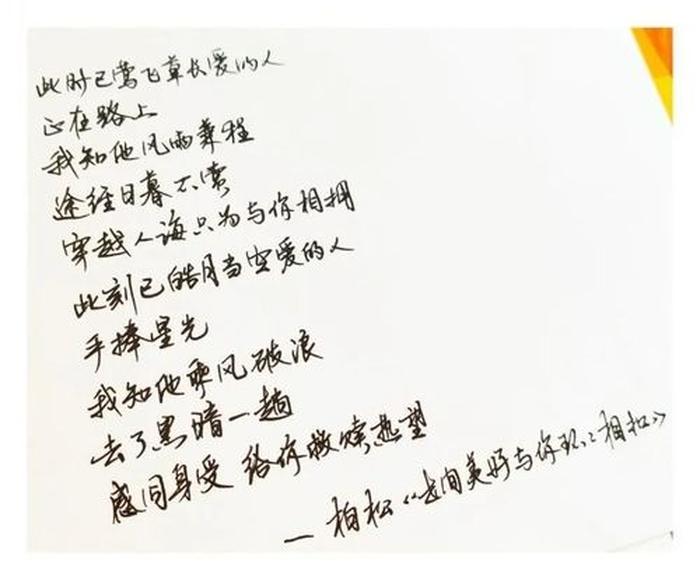 此时已莺飞草长爱的人
正在路上
我知他风雨兼程
途经日暮不赏
穿越人海只为与你相拥
此刻已皓月当空爱的人
手捧星光
我知他乘风破浪
去了黑暗一趟
感同身受 给你救赎热望
— 柏松《世间美好与你环环相扣》